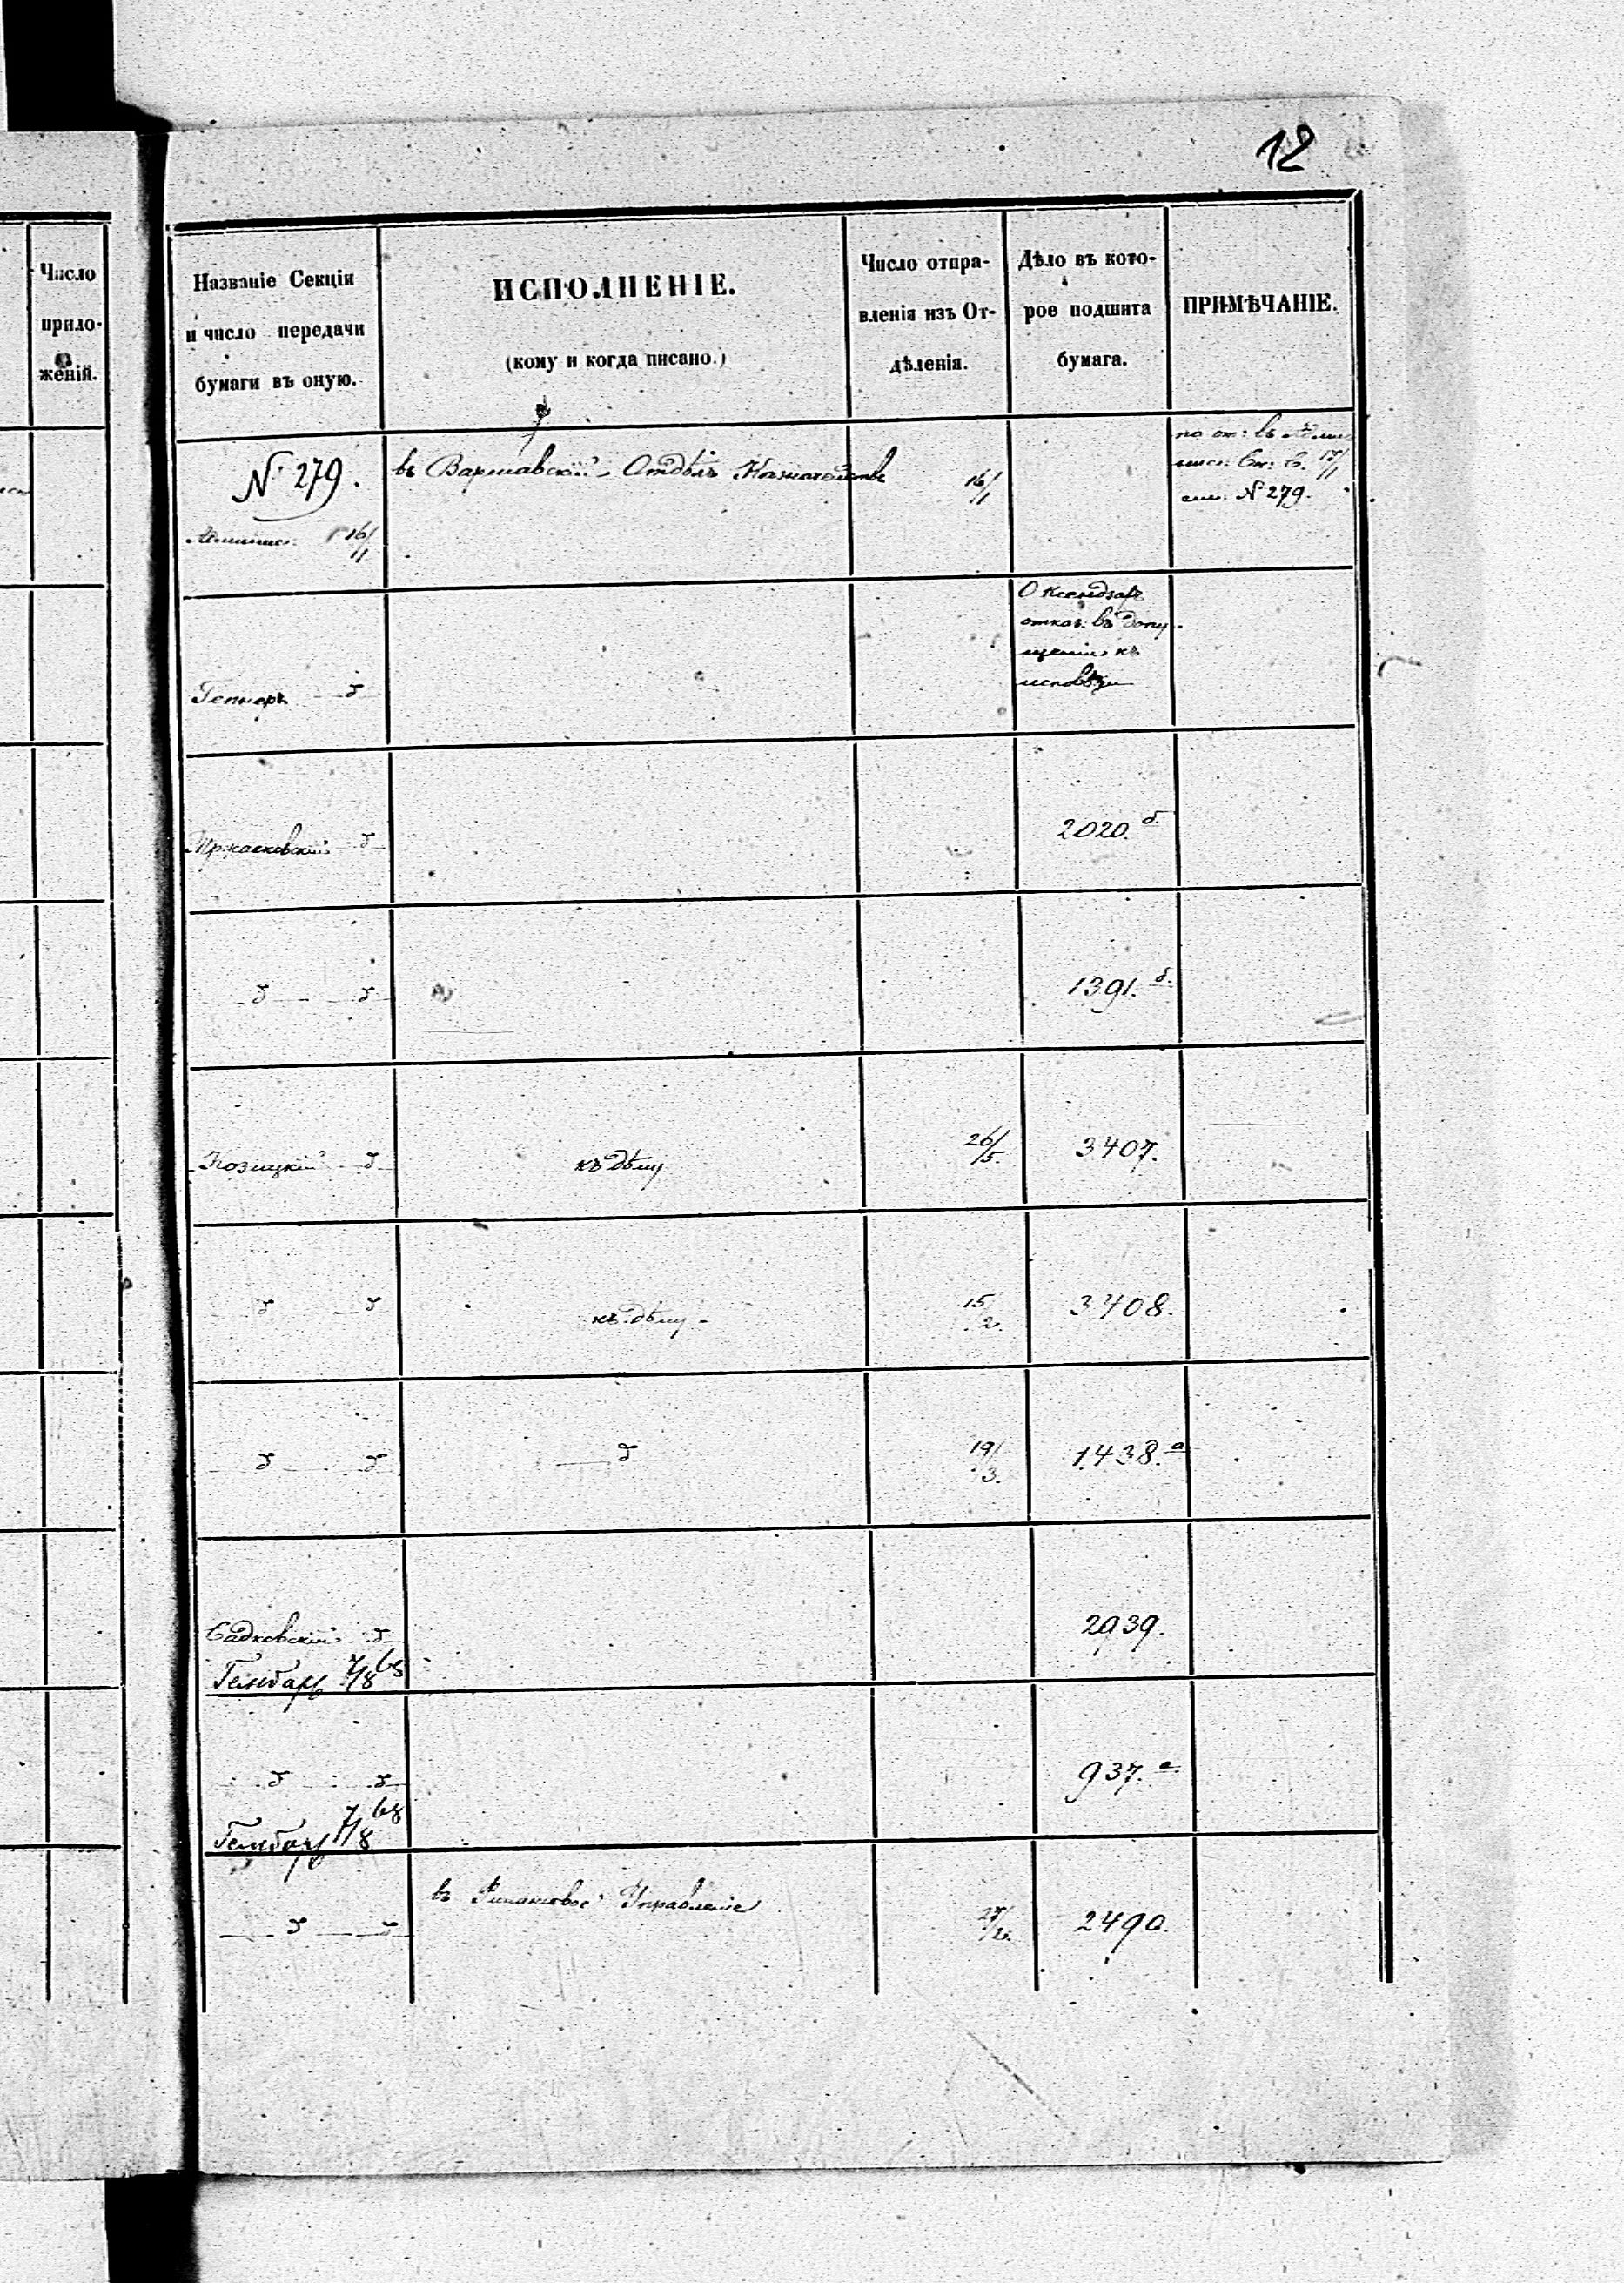 12
Число
прило-
женій.
Названіе Секціи
и число передачи
бумаги въ оную.
ИСПОЛНЕНІЕ.
(кому и когда писано.)
Число отпра-
вленія изъ От-
дѣленія.
Дѣло въ кото-
рое подшита
бумага.
ПРИМѢЧАНІЕ.
№ 279.
16/1
въ Варшавскій Отдѣлъ Казначейства
16/1
по от: въ
17/1
№ 279.
О Ксендзахъ
отказ: въ допу-
щеніи къ
исповѣди
2020.б.
1391.б.
Козицкій
къ дѣлу
26/5.
3407.
къ дѣлу
15/2.
3408.
19/3.
1438.а
Садковскій
7/8 68
2939.
7/8 68
937.а.
въ Финансовое Управленіе
27/2.
2490.